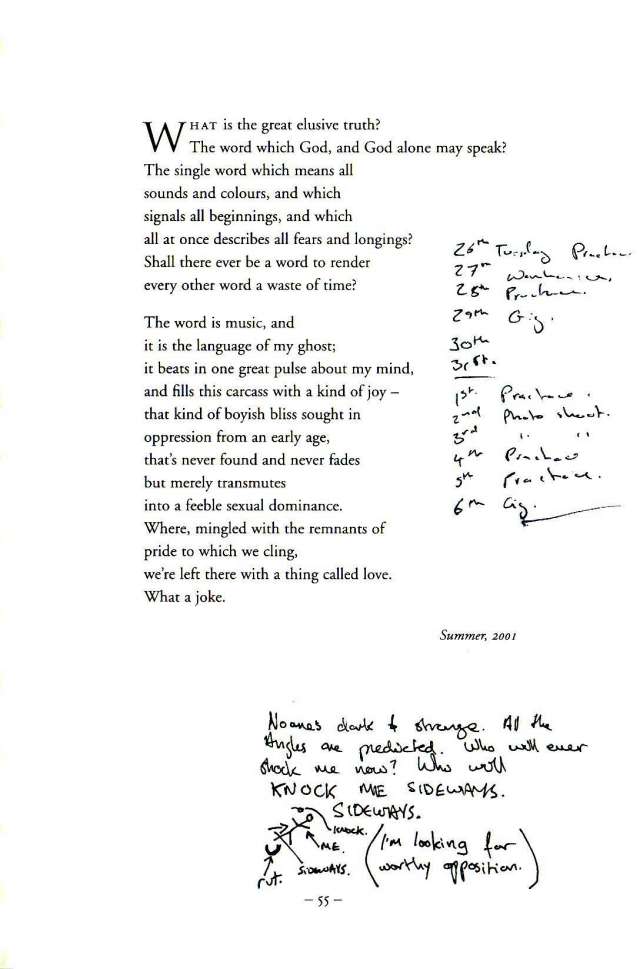 WHAT is the great elusive truth?
The word which God, and God alone may speak?
The single word which means all
sounds and colours, and which
signals all beginnings, and which
all at once describes all fears and longings?
Shall there ever be a word to render
every other word a waste of time?
The word is music, and
it is the language of my ghost;
it beats in one great pulse about my mind,
and fills this carcass with a kind of joy –
that kind of boyish bliss sought in
oppression from an early age,
that's never found and never fades
but merely transmutes
into a feeble sexual dominance.
Where, mingled with the remnants of
pride to which we cling,
we're left there with a thing called love.
What a joke.
Summer, 2001
26th Tuesday
27th
28th
29th Gig.
30th
31st.
1st. Practace.
2nd Photo shoot.
3rd " "
4th
5th Practace.
6th Gig.
Noones dark & strange. All the
Angles are predicted. Who will ever
shock me now? Who will
KNOCK ME SIDEWAYS.
SIDEWAYS.
KNOCK.
ME.
SIDEWAYS.
rut.
(I'm looking for
worthy opposition.)
– 55 –